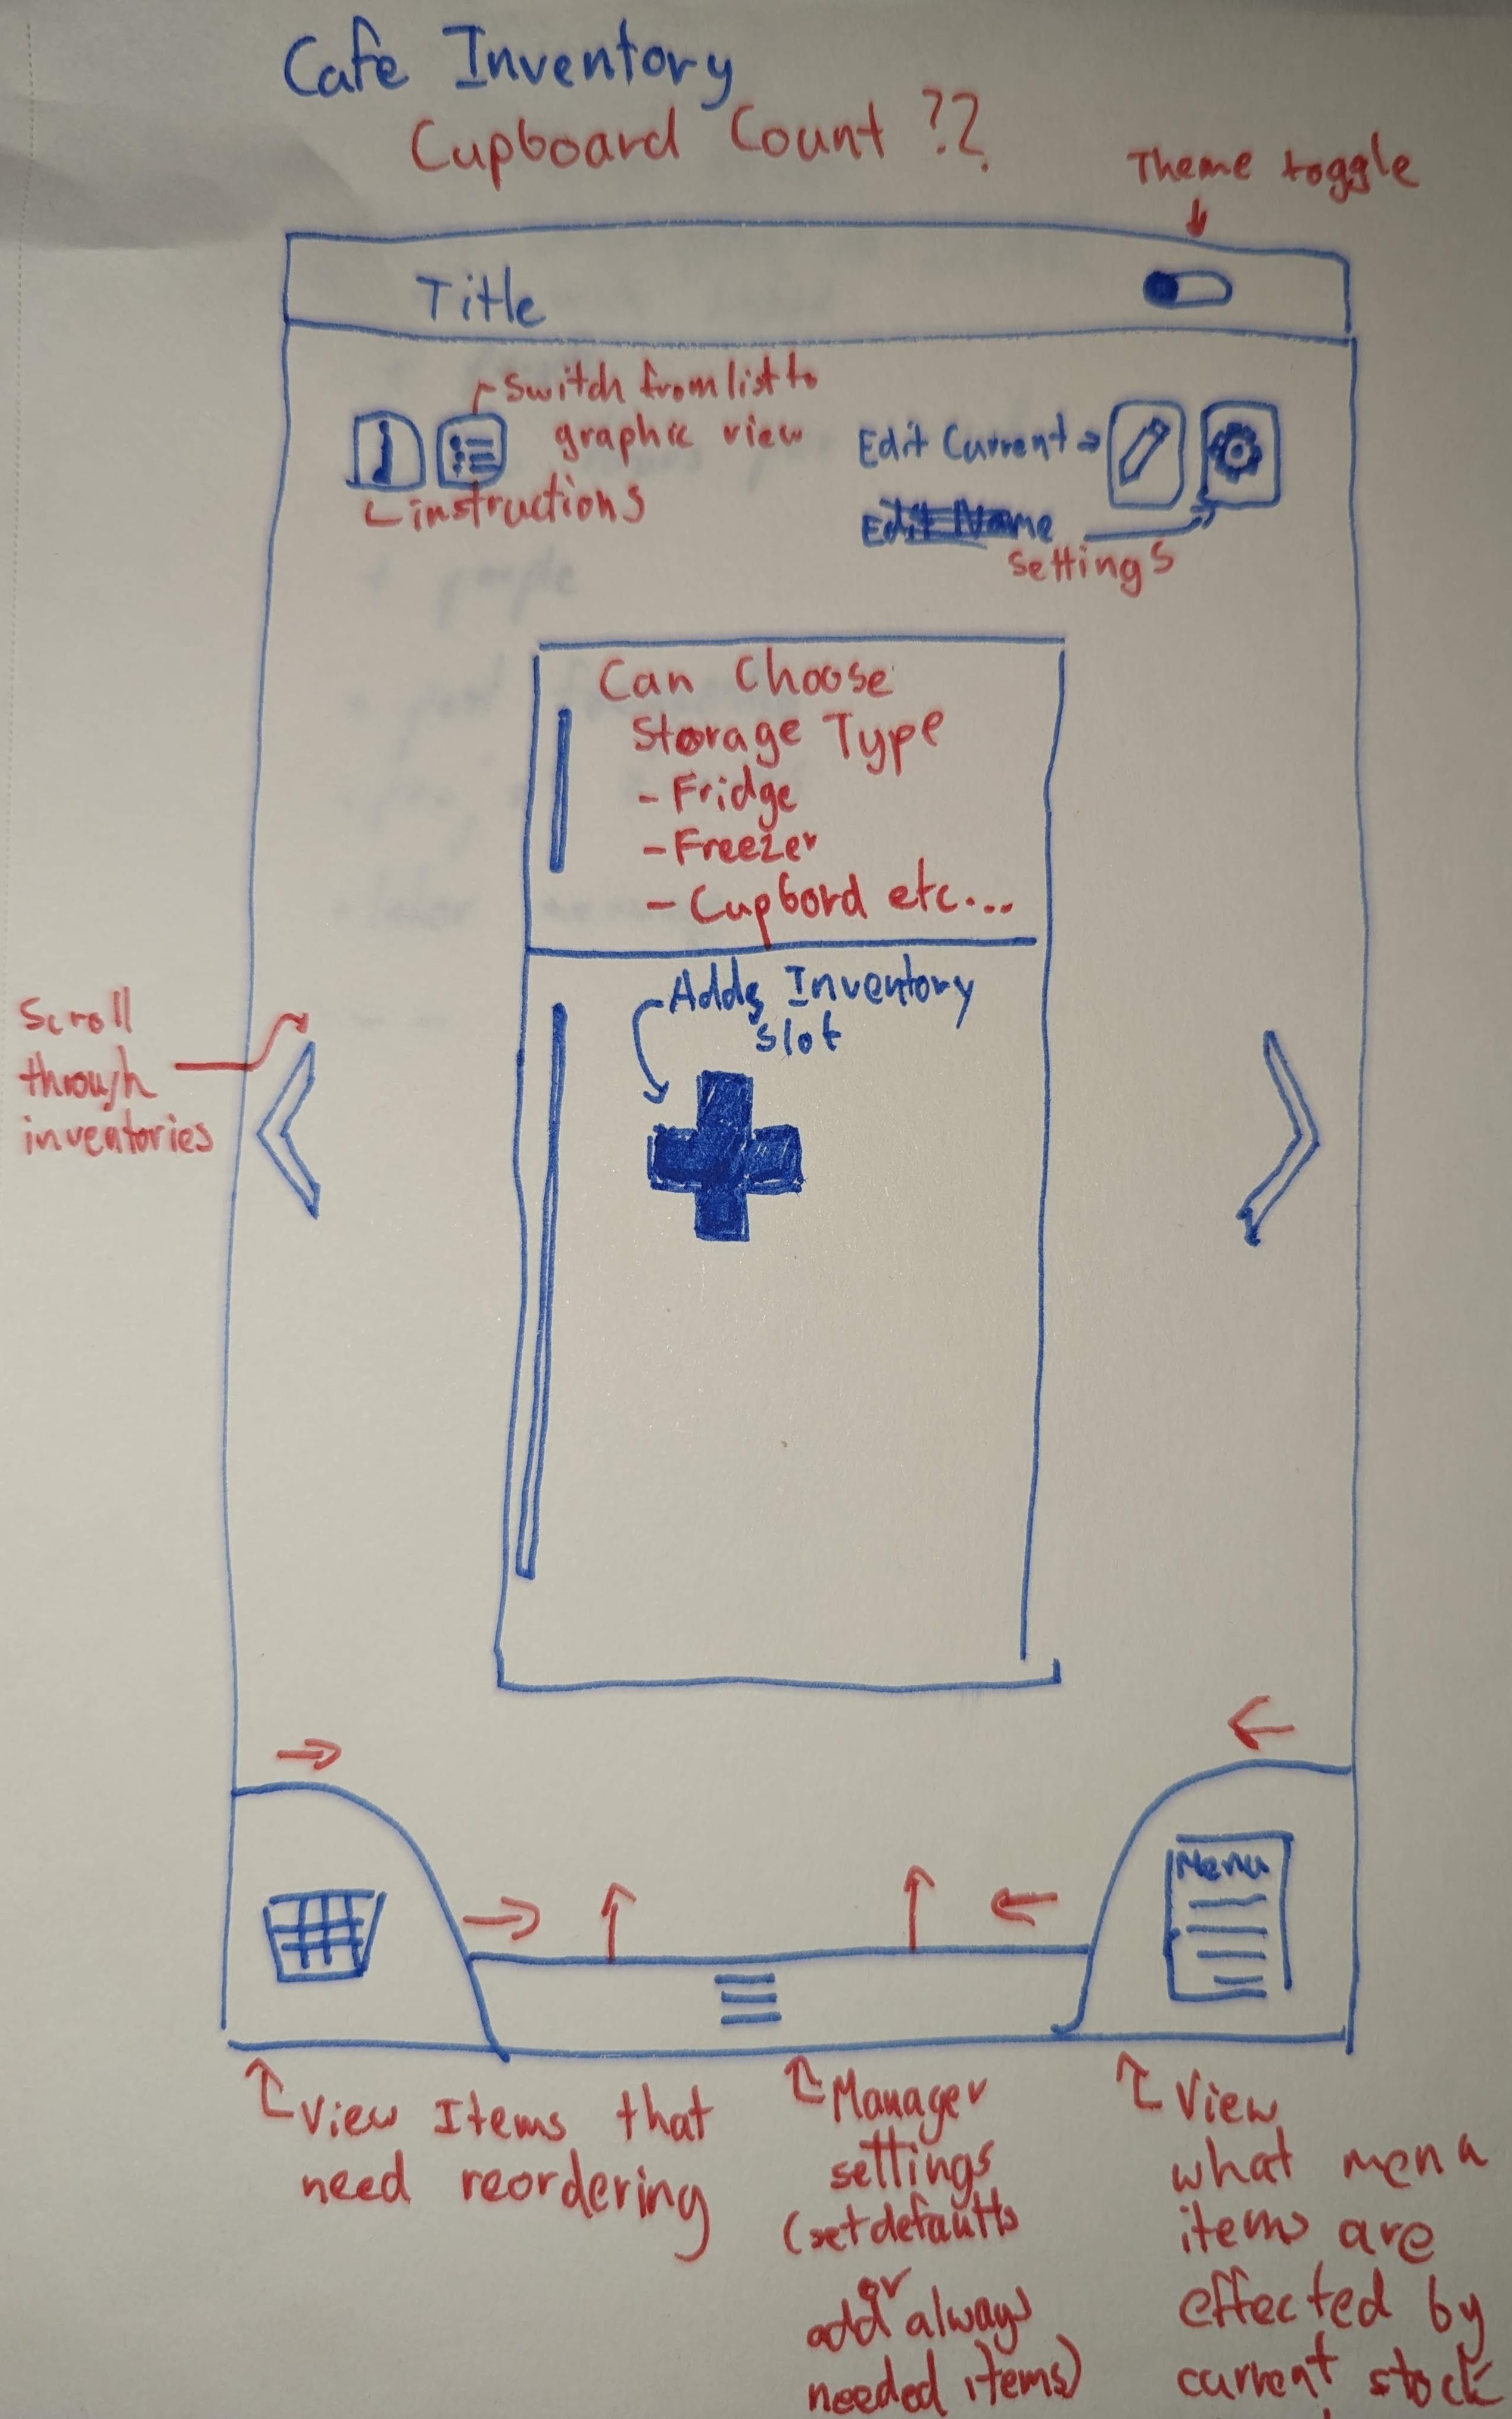 Cafe Inventory
Cupboard Count ??
Theme toggle
Title
Switch from list to
graphic view
instructions
Edit Current
Edit Name
Settings
Can Choose
Storage Type
- Fridge
- Freezer
- Cupbord etc...
Adds Inventory
slot
Scroll
through
inventories
Menu
View Items that
need reordering
Manager
settings
(set defaults
or
add always
needed items)
View
what menu
items are
effected by
current stock